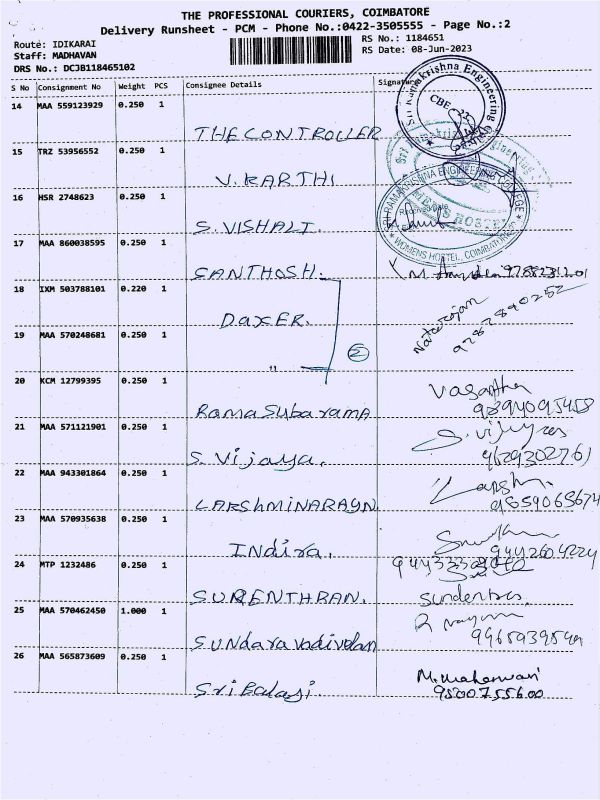 THE PROFESSIONAL COURIERS, COIMBATORE
Delivery Runsheet - PCM - Phone No.:0422-3505555 - Page No.:2
Route: IDIKARAI
RS No.: 1184651
Staff: MADHAVAN
RS Date: 08-Jun-2023
DRS No.: DCJB118465102
S No Consignment No Weight PCS Consignee Details Signature
14 MAA 559123929 0.250 1
THE CONTROLLER
Sri Ramakrishna Engineering
CBE
15 TRZ 53956552 0.250 1
V. KARTHI
SRI RAMAKRISHNA ENGINEERING COLLEGE
MENS HOSTEL
WOMENS HOSTEL, COIMBATORE
16 HSR 2748623 0.250 1
S. VISHALI.
17 MAA 860038595 0.250 1
SANTHOSH.
18 IXM 503788101 0.220 1
DaxER.
Natarajan
9787890252
19 MAA 570248681 0.250 1
"
2
20 KCM 12799395 0.250 1
Rama Subarama
Vasantha
9894095458
21 MAA 571121901 0.250 1
S. Vijaya.
9629302761
22 MAA 943301864 0.250 1
LAKSHMINARAYN
9859065674
23 MAA 570935638 0.250 1
Indira.
9442604224
24 MTP 1232486 0.250 1
SURENTHRAN.
25 MAA 570462450 1.000 1
Sundaravadivelan
26 MAA 565873609 0.250 1
Sri Balaji
M. Maheswari
9500755600